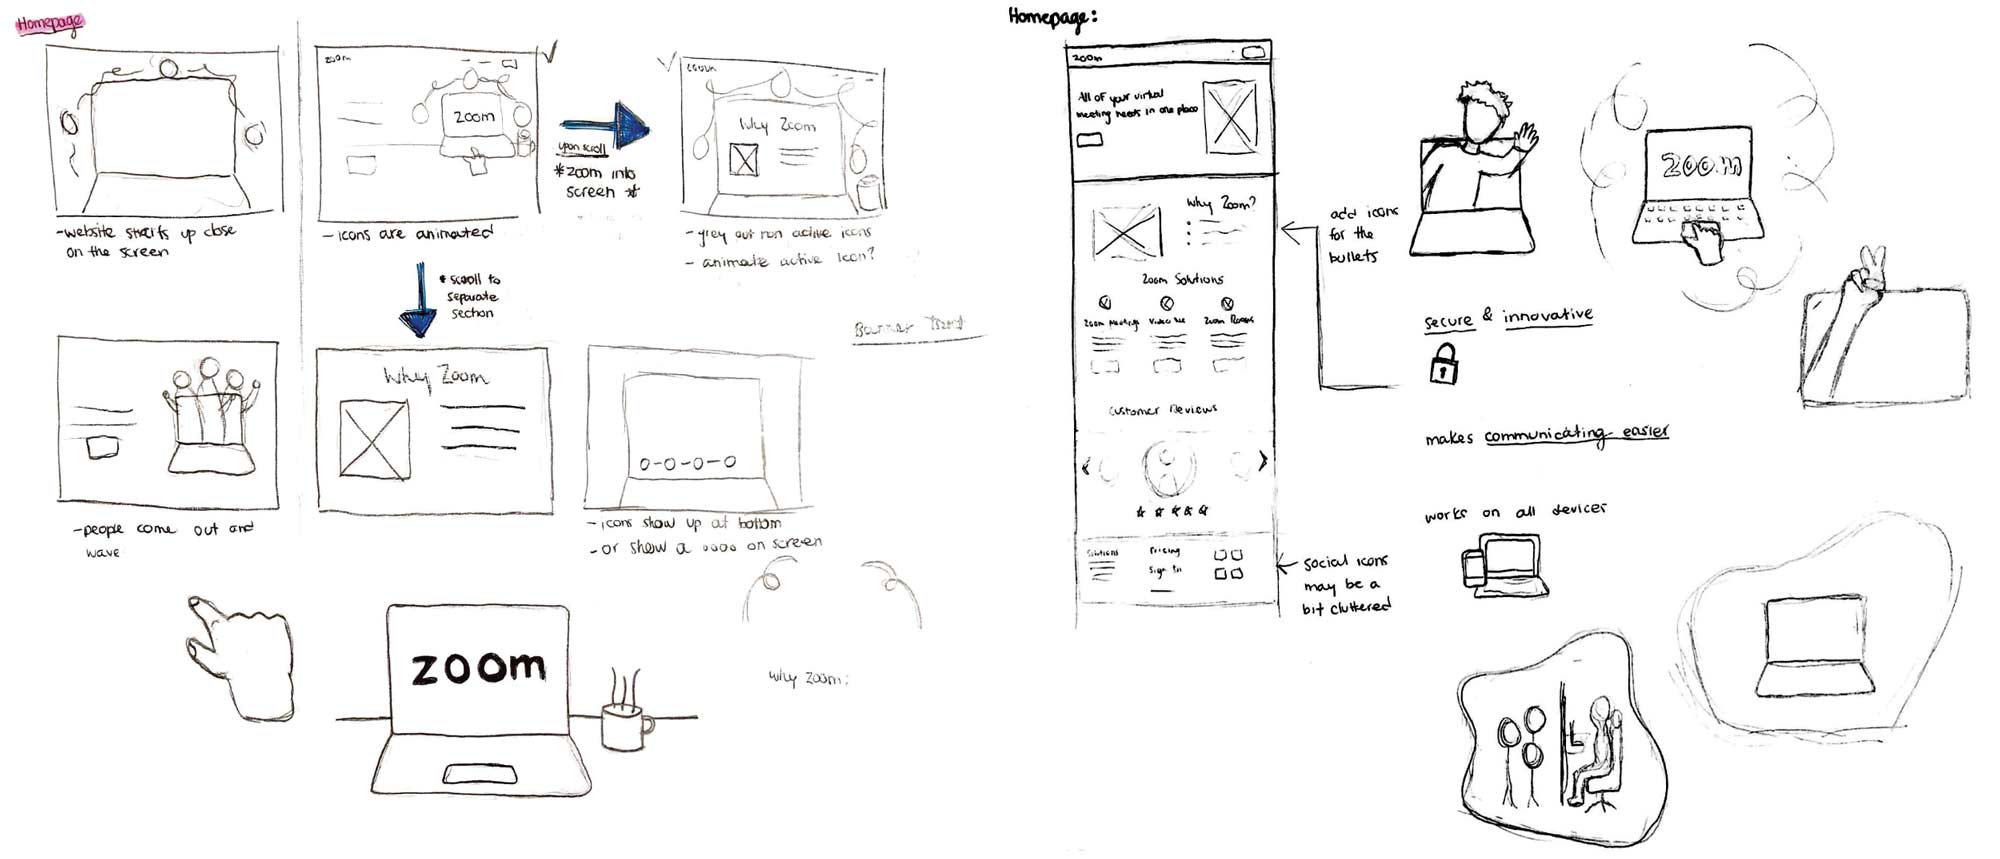 Homepage
zoom
zoom
upon scroll
*zoom into
screen *
zoom
Why Zoom
-website starts up close
on the screen
-icons are animated
-grey out non active icons
- animate active icon?
* scroll to
separate
section
Banner
Why Zoom
-people come out and
wave
-icons show up at bottom
-or show a oooo on screen
zoom
Why Zoom:
Homepage:
zoom
All of your virtual
meeting needs in one place
Why Zoom?
Zoom Solutions
Zoom Meetings
Zoom Rooms
Customer Reviews
Solutions
Pricing
Sign In
add icons
for the
bullets
social icons
may be a
bit cluttered
ZOOM
secure & innovative
makes communicating easier
works on all devices